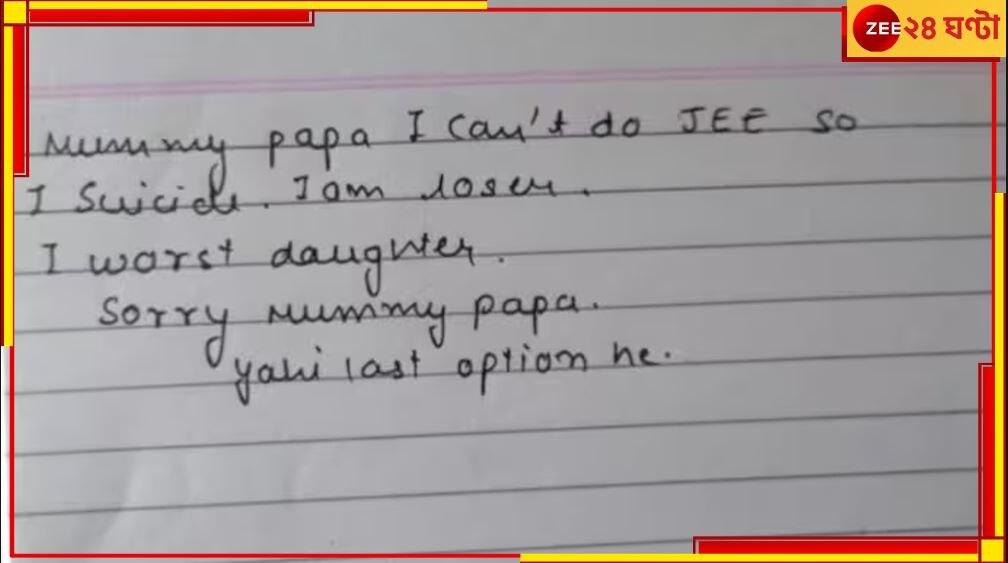 ZEE ২৪ ঘণ্টা
Mummy papa I can't do JEE so
I Suicide. I am loser.
I worst daughter.
Sorry Mummy papa.
yahi last option he.